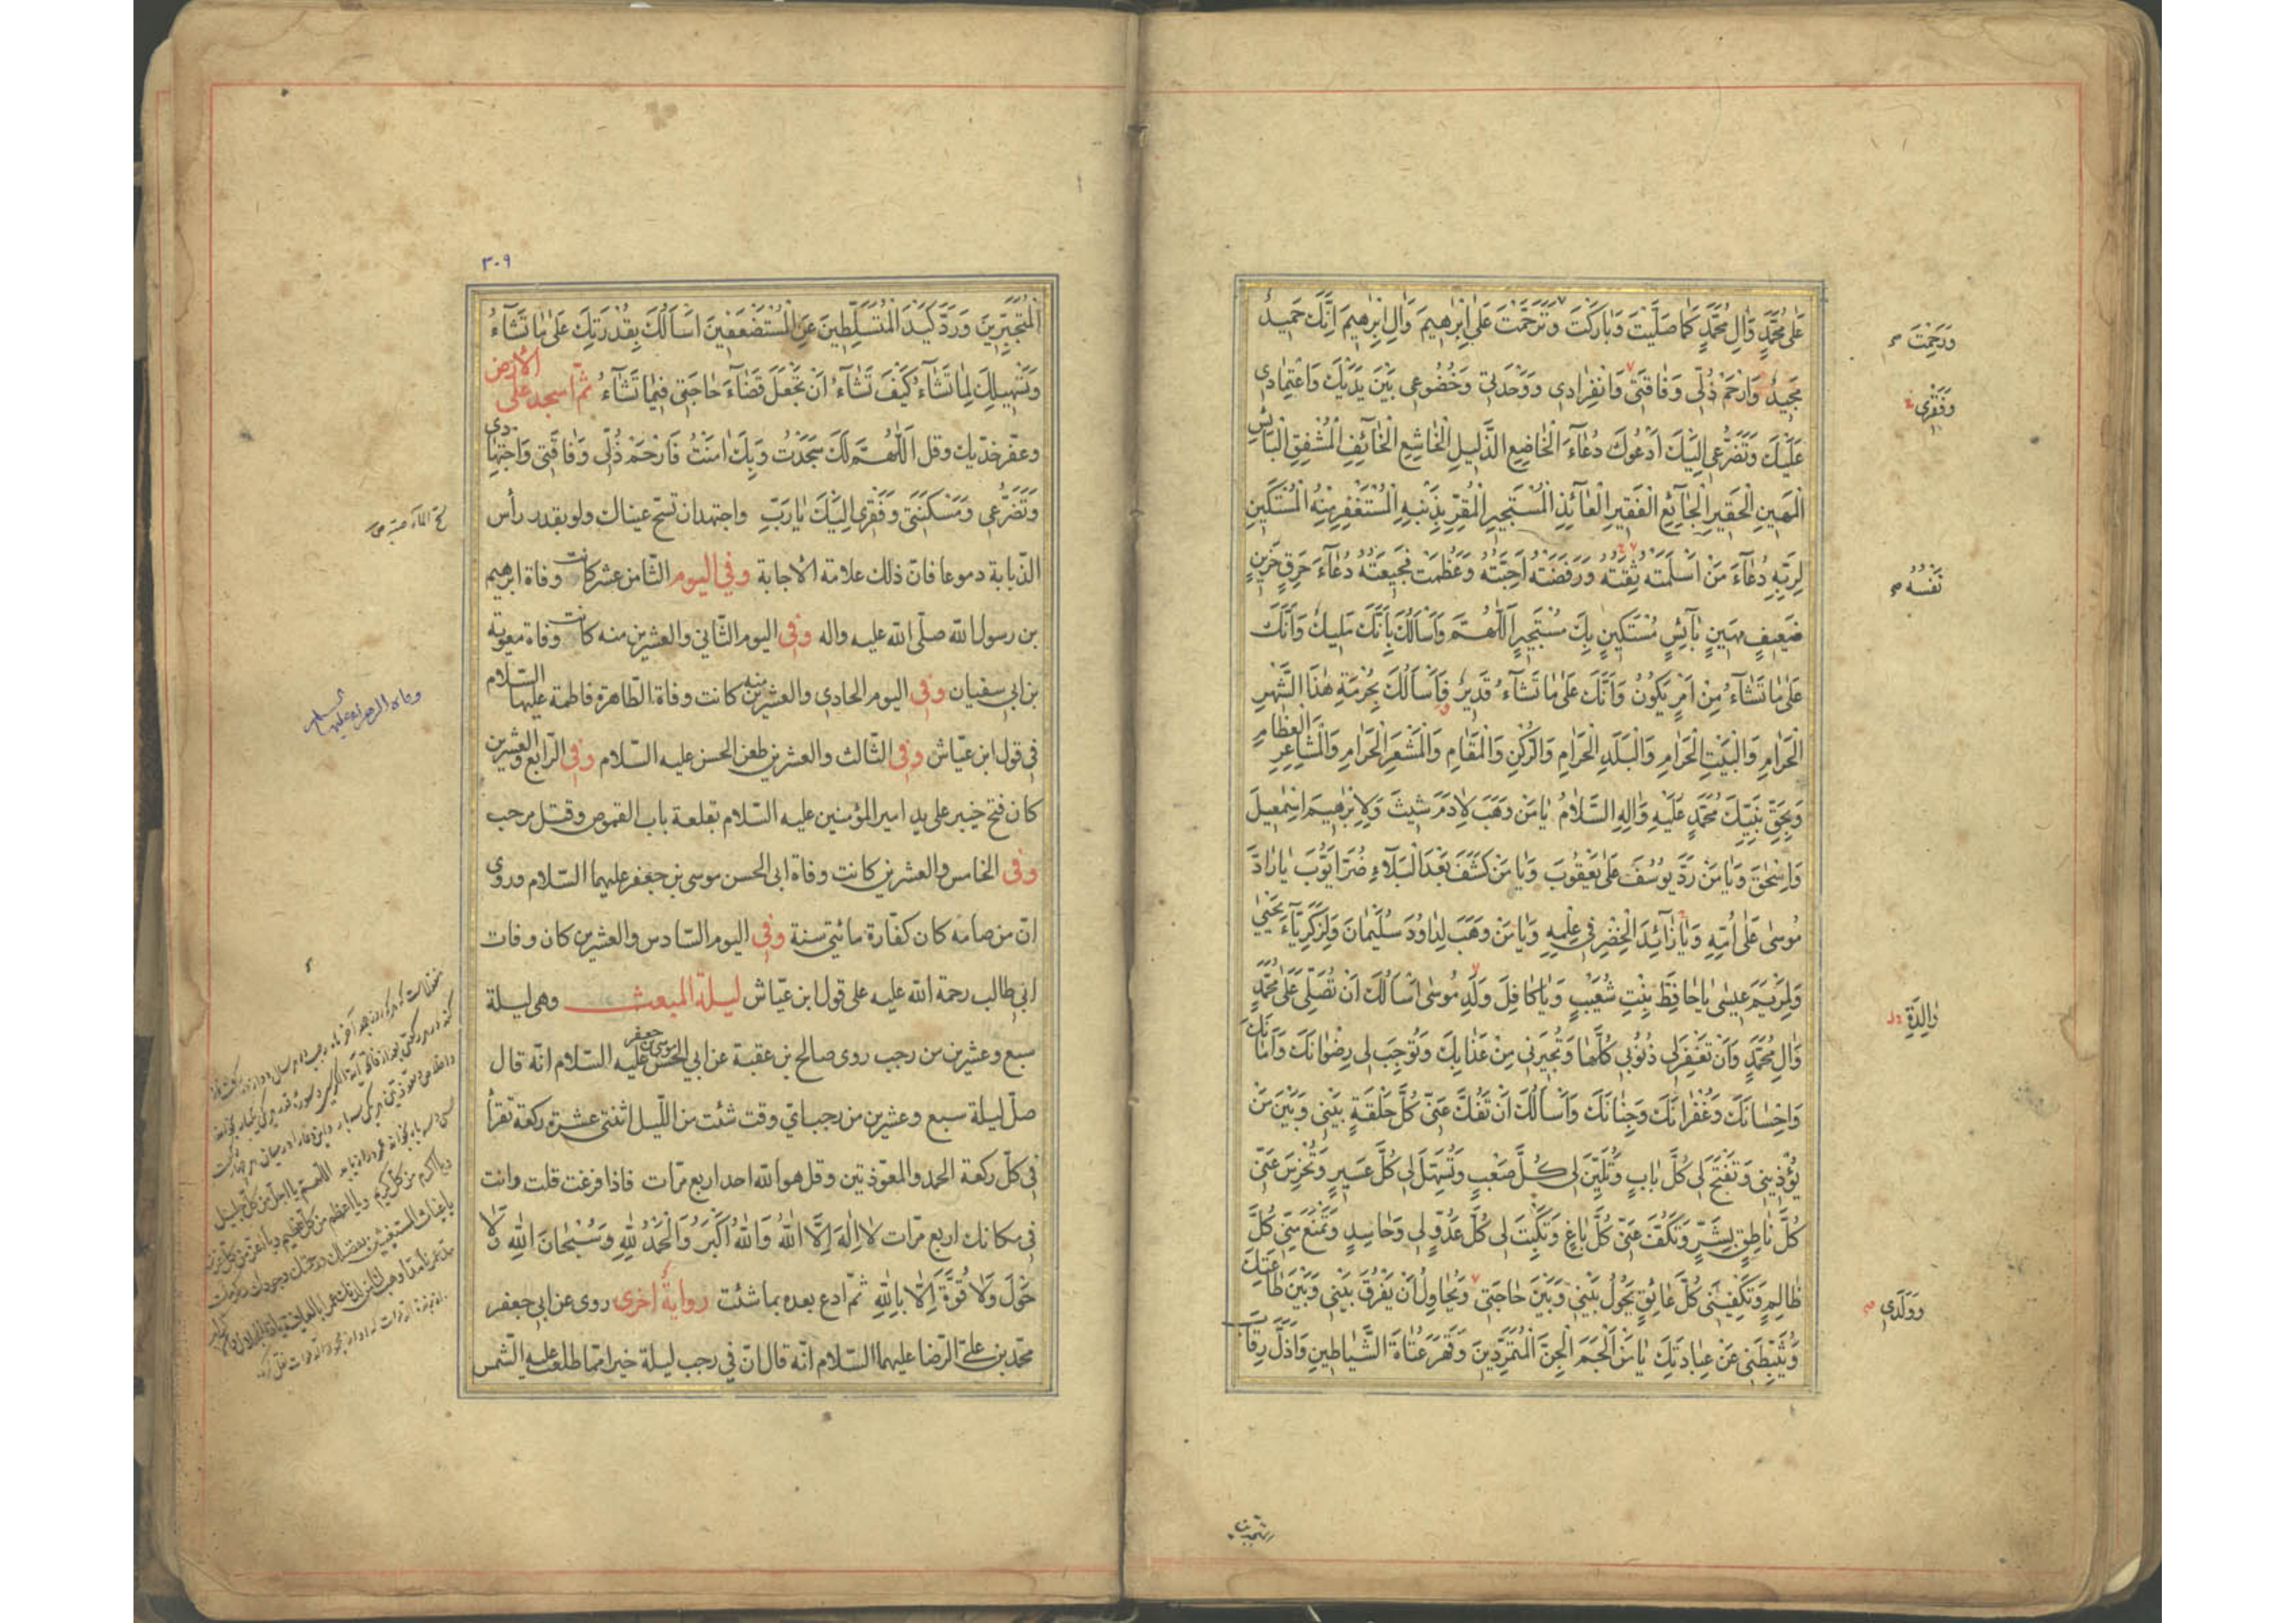 عَلىٰ مُحَمَّدٍ وَاٰلِ مُحَمَّدٍ كَمٰا صَلَّيْتَ وَبٰارَكْتَ وَتَرَحَّمْتَ عَلىٰ اِبْرٰهيمَ وَاٰلِ اِبْرٰهيمَ اِنَّكَ حَميدٌ
وَرَحِمْتَ
مَجيدٌ وَارْحَمْ ذُلّى وَفٰاقَتى وَانْفِرٰادى وَوَحْدَتى وَخُضُوعى بَيْنَ يَدَيْكَ وَاعْتِمٰادى
وَفَقْرى
عَلَيْكَ وَتَضَرُّعى اِلَيْكَ اَدْعُوكَ دُعٰاءَ الْخٰاضِعِ الذَّليلِ الْخٰاشِعِ الْخٰائِفِ الْمُشْفِقِ الْبٰائِسِ
الْمَهينِ الْحَقيرِ الْجٰائِعِ الْفَقيرِ الْعٰائِذِ الْمُسْتَجيرِ الْمُقِرِّ بِذَنْبِهِ الْمُسْتَغْفِرِ مِنْهُ الْمُسْتَكينِ
لِرَبِّهِ دُعٰاءَ مَنْ اَسْلَمَتْهُ ثِقَتُهُ وَرَفَضَتْهُ اَحِبَّتُهُ وَعَظُمَتْ فَجيعَتُهُ دُعٰاءَ حَرِقٍ حَزينٍ
نَفْسُهُ
ضَعيفٍ مَهينٍ بٰائِسٍ مُسْتَكينٍ بِكَ مُسْتَجيرٍ اَللّٰهُمَّ وَاَسْأَلُكَ بِاَنَّكَ مَليكٌ وَاَنَّكَ
عَلىٰ مٰا تَشٰاءُ مِنْ اَمْرٍ يَكُونُ وَاَنَّكَ عَلىٰ مٰا تَشٰاءُ قَديرٌ فَاَسْأَلُكَ بِحُرْمَةِ هٰذَا الشَّهْرِ
الْحَرٰامِ وَالْبَيْتِ الْحَرٰامِ وَالْبَلَدِ الْحَرٰامِ وَالرُّكْنِ وَالْمَقٰامِ وَالْمَشْعَرِ الْحَرٰامِ وَالْمَشٰاعِرِ الْعِظٰامِ
وَبِحَقِّ نَبِيِّكَ مُحَمَّدٍ عَلَيْهِ وَاٰلِهِ السَّلٰامُ يٰا مَنْ وَهَبَ لِاٰدَمَ شيثَ وَلِاِبْرٰهيمَ اِسْمٰعيلَ
وَاِسْحٰقَ وَيٰا مَنْ رَدَّ يُوسُفَ عَلىٰ يَعْقُوبَ وَيٰا مَنْ كَشَفَ بَعْدَ الْبَلٰاءِ ضُرَّ اَيُّوبَ يٰا رٰادَّ
مُوسىٰ عَلىٰ اُمِّهِ وَيٰا زٰائِدَ الْخِضْرِ فى عِلْمِهِ وَيٰا مَنْ وَهَبَ لِدٰاوُدَ سُلَيْمٰانَ وَلِزَكَرِيّٰاءَ يَحْيىٰ
وَلِمَرْيَمَ عيسىٰ يٰا حٰافِظَ بِنْتِ شُعَيْبٍ وَيٰا كٰافِلَ وَلَدِ مُوسىٰ اَسْأَلُكَ اَنْ تُصَلِّىَ عَلىٰ مُحَمَّدٍ
وٰالِدَةِ
وَاٰلِ مُحَمَّدٍ وَاَنْ تَغْفِرَ لى ذُنُوبى كُلَّهٰا وَتُجيرَنى مِنْ عَذٰابِكَ وَتُوجِبَ لى رِضْوٰانَكَ وَاَمٰانَكَ
وَاِحْسٰانَكَ وَغُفْرٰانَكَ وَجِنٰانَكَ وَاَسْأَلُكَ اَنْ تَفُكَّ عَنّى كُلَّ حَلْقَةٍ بَيْنى وَبَيْنَ مَنْ
يُؤْذينى وَتَفْتَحَ لى كُلَّ بٰابٍ وَتُلَيِّنَ لى كُلَّ صَعْبٍ وَتُسَهِّلَ لى كُلَّ عَسيرٍ وَتُخْرِسَ عَنّى
كُلَّ نٰاطِقٍ بِشَرٍّ وَتَكُفَّ عَنّى كُلَّ بٰاغٍ وَتَكْبِتَ لى كُلَّ عَدُوٍّ لى وَحٰاسِدٍ وَتَمْنَعَ مِنّى كُلَّ
ظٰالِمٍ وَتَكْفِيَنى كُلَّ عٰائِقٍ يَحُولُ بَيْنى وَبَيْنَ حٰاجَتى وَيُحٰاوِلُ اَنْ يُفَرِّقَ بَيْنى وَبَيْنَ طٰاعَتِكَ
وَوَلَدى
وَيُثَبِّطَنى عَنْ عِبٰادَتِكَ يٰا مَنْ اَلْجَمَ الْجِنَّ الْمُتَمَرِّدينَ وَقَهَرَ عُتٰاةَ الشَّيٰاطينِ وَاَذَلَّ رِقٰابَ
٣٠٩
الْمُتَجَبِّرينَ وَرَدَّ كَيْدَ الْمُتَسَلِّطينَ عَنِ الْمُسْتَضْعَفينَ اَسْأَلُكَ بِقُدْرَتِكَ عَلىٰ مٰا تَشٰاءُ
وَتَسْهيلِكَ لِمٰا تَشٰاءُ كَيْفَ تَشٰاءُ اَنْ تَجْعَلَ قَضٰاءَ حٰاجَتى فيمٰا تَشٰاءُ ثمّ اسجد على الارض
وعفّر خدّيك وقل اَللّٰهُمَّ لَكَ سَجَدْتُ وَبِكَ اٰمَنْتُ فَارْحَمْ ذُلّى وَفٰاقَتى وَاجْتِهٰادى
وَتَضَرُّعى وَمَسْكَنَتى وَفَقْرى اِلَيْكَ يٰا رَبِّ واجتهد ان تسحّ عيناك ولو بقدر رأس
الذبابة دموعا فانّ ذلك علامة الاجابة وفى اليوم الثامن عشر كانت وفاة ابرهيم
بن رسول الله صلّى الله عليه واله وفى اليوم الثانى والعشرين منه كانت وفاة معوية
بن ابى سفيان وفى اليوم الحادى والعشرين منه كانت وفاة الطاهرة فاطمة عليها السّلام
فى قول ابن عيّاش وفى الثالث والعشرين طعن الحسن عليه السّلام وفى الرابع والعشرين
كان فتح خيبر على يد امير المؤمنين عليه السّلام بقلعة باب القموص وقتل مرحب
وفى الخامس والعشرين كانت وفاة ابى الحسن موسى بن جعفر عليهما السّلام وروى
انّ من صامه كان كفّارة مائتى سنة وفى اليوم السّادس والعشرين كان وفات
ابى طالب رحمة الله عليه على قول ابن عيّاش ليلة المبعث وهى ليلة
سبع وعشرين من رجب روى صالح بن عقبة عن ابى الحسن موسى بن جعفر عليه السّلام انّه قال
صلّ ليلة سبع وعشرين من رجب اىّ وقت شئت من اللّيل اثنتى عشرة ركعة تقرأ
فى كلّ ركعة الحمد والمعوّذتين وقل هو الله احد اربع مرّات فاذا فرغت قلت وانت
فى مكانك اربع مرّات لٰا اِلٰهَ اِلَّا اللهُ وَاللهُ اَكْبَرُ وَالْحَمْدُ لِلّٰهِ وَسُبْحٰانَ اللهِ وَلٰا
حَوْلَ وَلٰا قُوَّةَ اِلّٰا بِاللهِ ثمّ ادع بعده بما شئت رواية اخرى روى عن ابى جعفر
محمّد بن علىّ الرضا عليهما السّلام انّه قال انّ فى رجب ليلة خير ممّا طلعت عليه الشمس